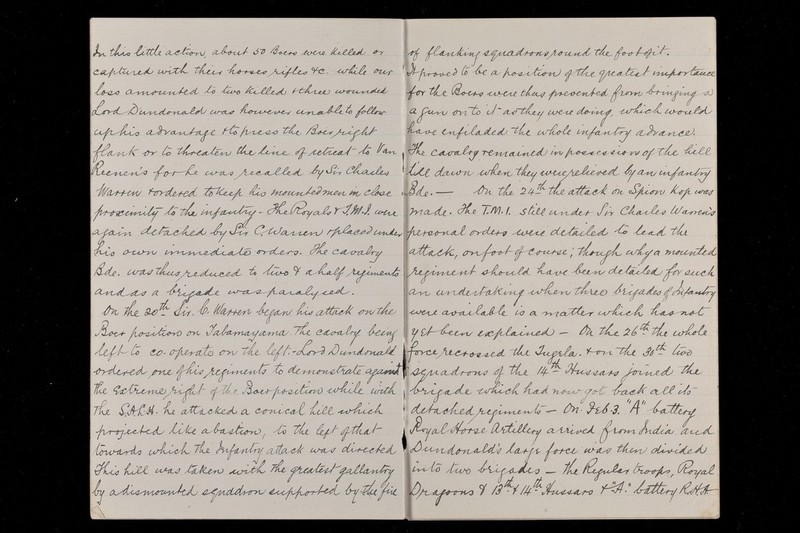 In this little action, about 50 Boers were killed or
captured with their horses, rifles &c. while our
loss amounted to two killed & three wounded
Lord Dundonald was however unable to follow
up his advantage & to press the Boer right
flank or to threaten the line of retreat to Van
Reenen's for he was recalled by Sir Charles
Warren & ordered to keep his mounted men in close
proximity to the infantry - The Royals & T.M.I. were
again detached by Sir C. Warren & placed under
his own immediate orders. The cavalry
Bde. was thus reduced to two & a half regiments
and as a brigade was paralysed.
On the 20th Sir C. Warren began his attack on the
Boer position on Tabamayama. The cavalry being
left to co-operate on the left - Lord Dundonald
ordered one of his regiments to demonstrate against
the extreme right of the Boer position while with
the S.A.L.H. he attacked a conical hill which
projected like a bastion, to the left of that
towards which the Infantry attack was directed
This hill was taken with the greatest gallantry
by a dismounted squadron supported by the fire
of flanking squadrons round the foot of it.
It proved to be a position of the greatest importance
for the Boers were thus prevented from bringing a
a gun on to it as they were doing, which would
have enfiladed the whole infantry advance.
The cavalry remained in possession of the hill
till dawn when they were relieved by an infantry
Bde. — On the 24th the attack on Spion Kop was
made. The T.M.I. still under Sir Charles Warren's
personal orders were detailed to lead the
attack, on foot of course; though why a mounted
regiment should have been detailed for such
an undertaking when three brigades of Infantry
were available is a matter which has not
yet been explained — On the 26th the whole
force recrossed the Tugela. & on the 30th two
squadrons of the 14th Hussars joined the
brigade which had now got back all its
detached regiments — On Feb 3. "A" battery
Royal Horse Artillery arrived from India and
Dundonald's large force was then divided
into two brigades — the Regular troops, Royal
Dragoons & 13th & 14th Hussars & "A." battery R.H.A